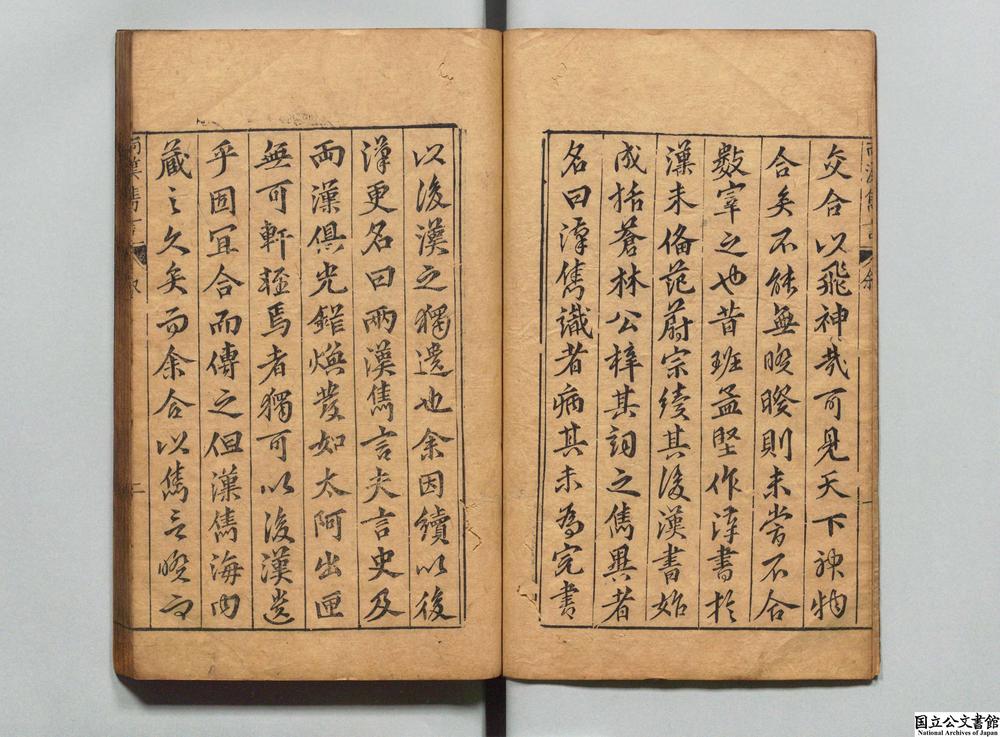 交合以飛神哉可見天下神物
合矣不能無暌暌則未嘗不合
數宰之也昔班孟堅作漢書於
漢未備范蔚宗續其後漢書始
成括蒼林公梓其詞之雋異者
名曰漢雋識者病其未為完書
以後漢之獨遺也余因續以後
漢更名曰兩漢雋言夫言史及
兩漢俱光錯煥發如太阿出匣
無可軒輊焉者獨可以後漢遺
乎固宜合而傳之但漢雋海內
藏之久矣而余合以雋言暌而
兩漢雋言
敘
一
兩漢雋言
敘
二
国立公文書館
National Archives of Japan